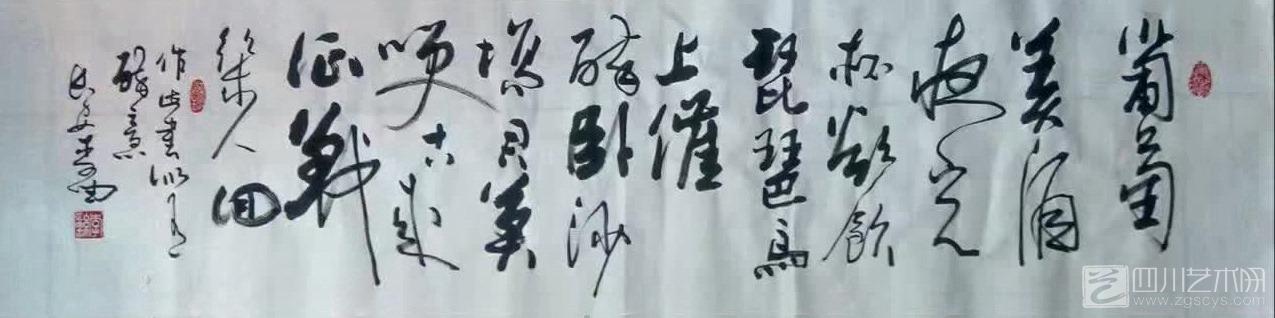 葡萄
美酒
夜光
杯欲飲
琵琶馬
上催
醉卧沙
場君莫
笑古來
征戰
幾人回
作此書似有
醉意
四川艺术网
www.zgscys.com